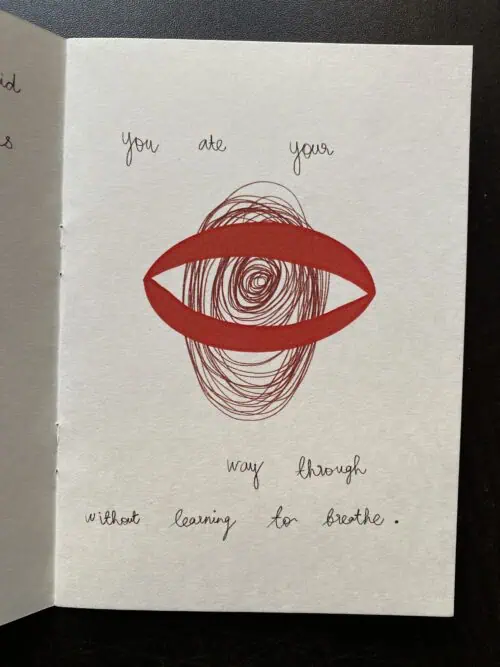 id
s
you ate your
way through
without learning to breathe.